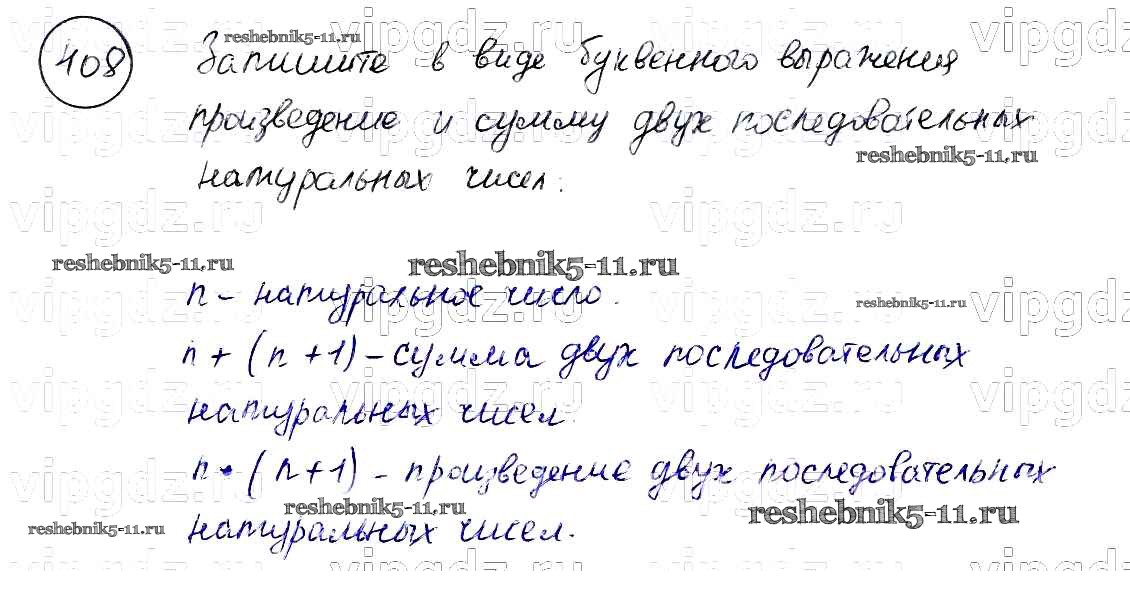 vipgdz.ru vipgdz.ru
reshebnik5-11.ru
408 Запишите в виде буквенного выражения
произведение и сумму двух последовательных
reshebnik5-11.ru
натуральных чисел.
vipgdz.ru vipgdz.ru
reshebnik5-11.ru reshebnik5-11.ru
n – натуральное число.
reshebnik5-11.ru
n + (n + 1) – сумма двух последовательных
натуральных чисел.
n · (n + 1) – произведение двух последовательных
reshebnik5-11.ru reshebnik5-11.ru
reshebnik5-11.ru натуральных чисел.